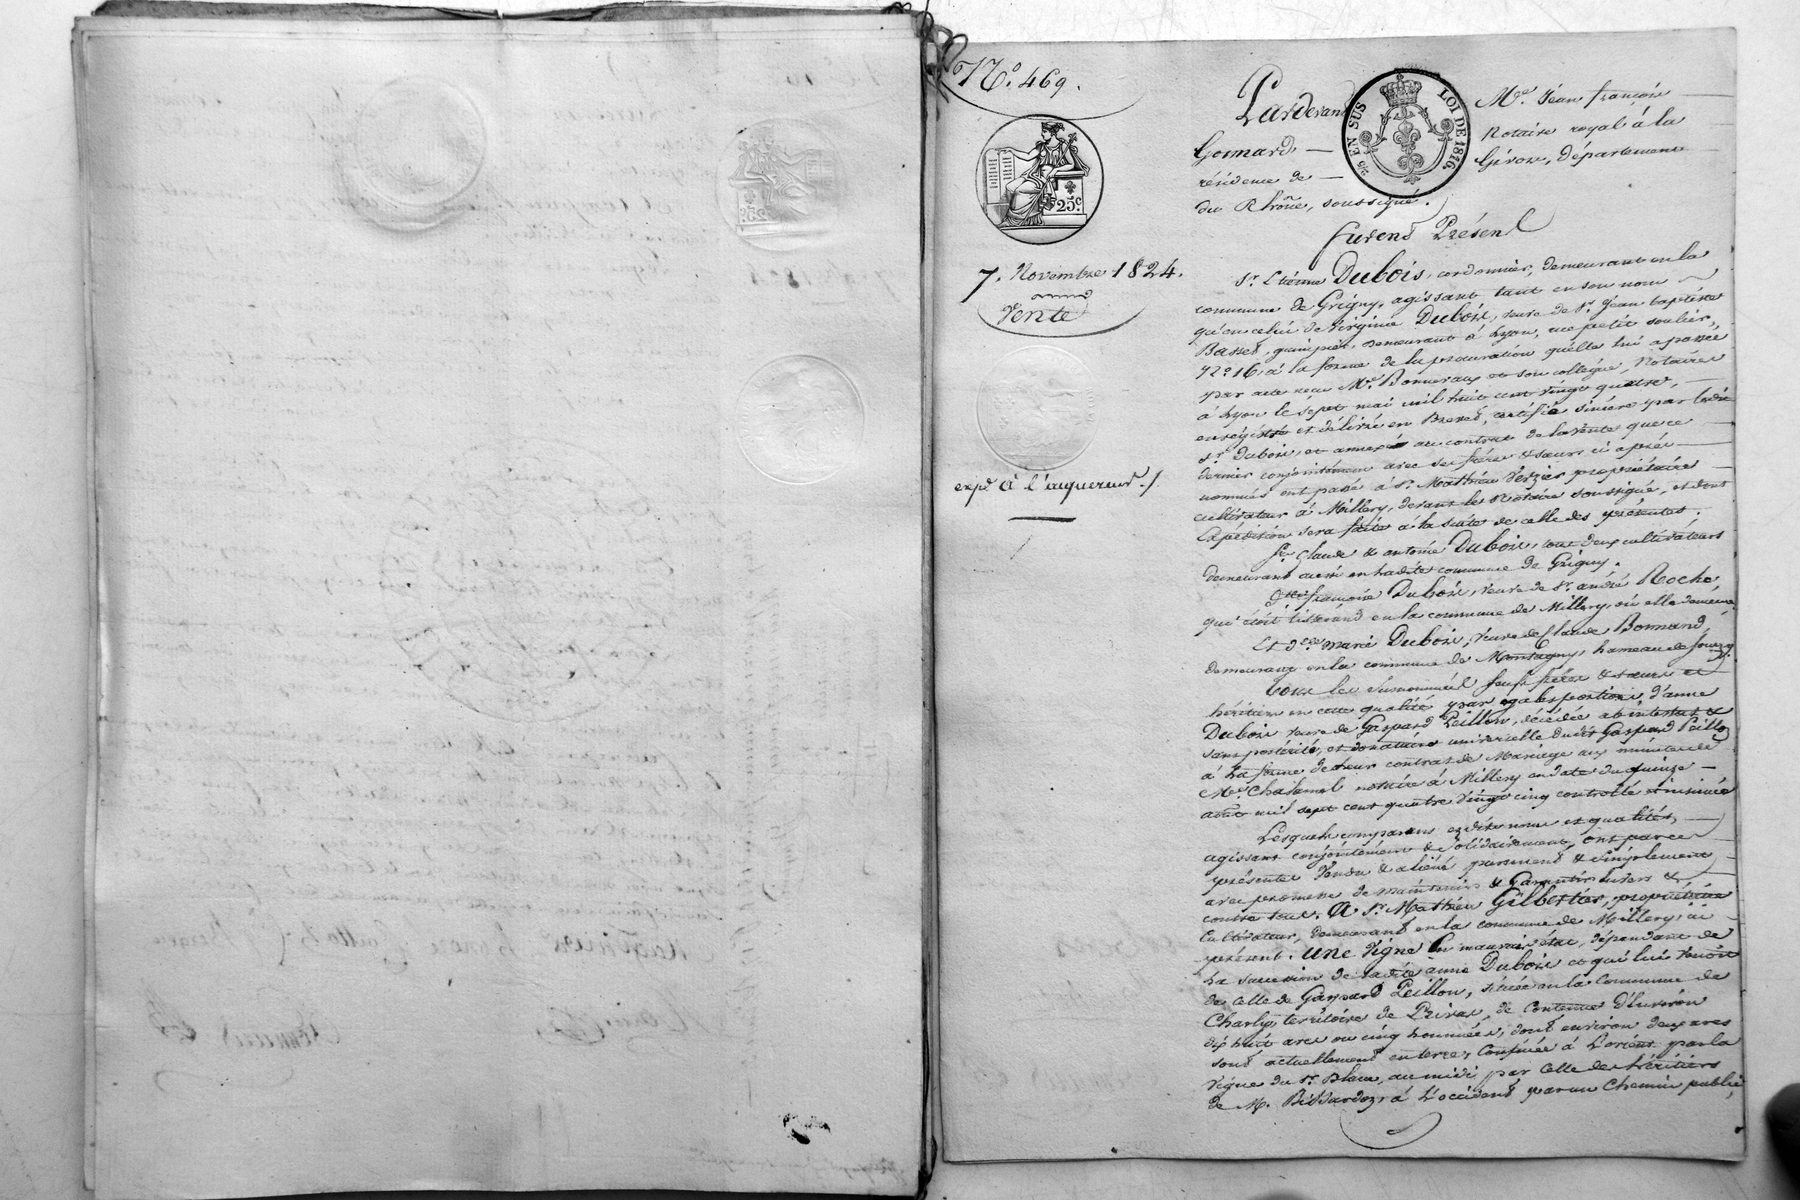 N.° 469.
25 c.
7. Novembre 1824.
Vente
exp.é à l'aquereur./
25 EN SUS LOI DE 1816
Pardevant Me. Jean françois
Goimard — Notaire royal à la
résidence de — Givors, département
du Rhône, soussigné.
furent Présent
Sr. Etienne Dubois, cordonnier, demeurant en la
commune de Grigny, agissant tant en son nom
qu'en celui de Virginie Dubois, veuve de Sr. Jean baptiste
Basset, guimpier, demeurant à Lyon, rue petit soulier,
N.° 16, à la forme de la procuration qu'elle lui a passée
par acte reçu Me. Bonnevaux et son collègue, Notaires
à Lyon le sept mai mil huit cent vingt quatre,
enrégistré et délivré en Brevet, certifié sincère par ledit
Sr. Dubois, et annexé au contrat de la vente que ce
dernier conjointement avec ses frères & sœurs ci après
nommés ont passé à Sr. Mathieu Verzier propriétaire
cultivateur à Millery, devant le Notaire soussigné, et dont
Expédition sera faite à la suite de celle des présentes.
Srs. Claude & antoine Dubois, tous deux cultivateurs
demeurant aussi en ladite commune de Grigny.
Dlle. françoise Dubois, veuve de Sr. andré Roche,
qui étoit tisserand en la commune de Millery, où elle demeure.
Et Dlle. marie Dubois, veuve de Claude Bonnand,
demeurant en la commune de Montagny, hameau de
tous les Surnommés frères & sœurs et
héritiers en cette qualité par égales portions, d'anne
Dubois veuve de Gaspard Peillon, décédée abintestat &
sans postérité, et donataire universelle dudit Gaspard Peillon
à la forme de leur contrat de Mariage aux minutes de
Me. Chatamel notaire à Millery en date du quinze —
août mil sept cent quatre vingt cinq controllé & insinué
Lesquels comparans esdits noms et qualités,
agissant conjointement & Solidairement, ont par ces
présentes Vendu & aliéné purement & simplement,
avec promesse de maintenir & Garantir envers &
contre tous. A Sr. Mathieu Gilbertier, propriétaire
Cultivateur, demeurant en la commune de Millery, ici
présent. Une Vigne en mauvais état, dépendant de
la succession de ladite anne Dubois et qui lui venoit
de celle de Gaspard Peillon, située en la Commune de
Charly, territoire de Privas, de Contenue d'Environ
dix huit ares ou cinq hommées, dont environ deux ares
sont actuellement en terre; Confinée à l'orient par la
Vigne du Sr. Blanc, au midi par Celle des héritiers
de M. Bissardon, à l'occident par un Chemin public,